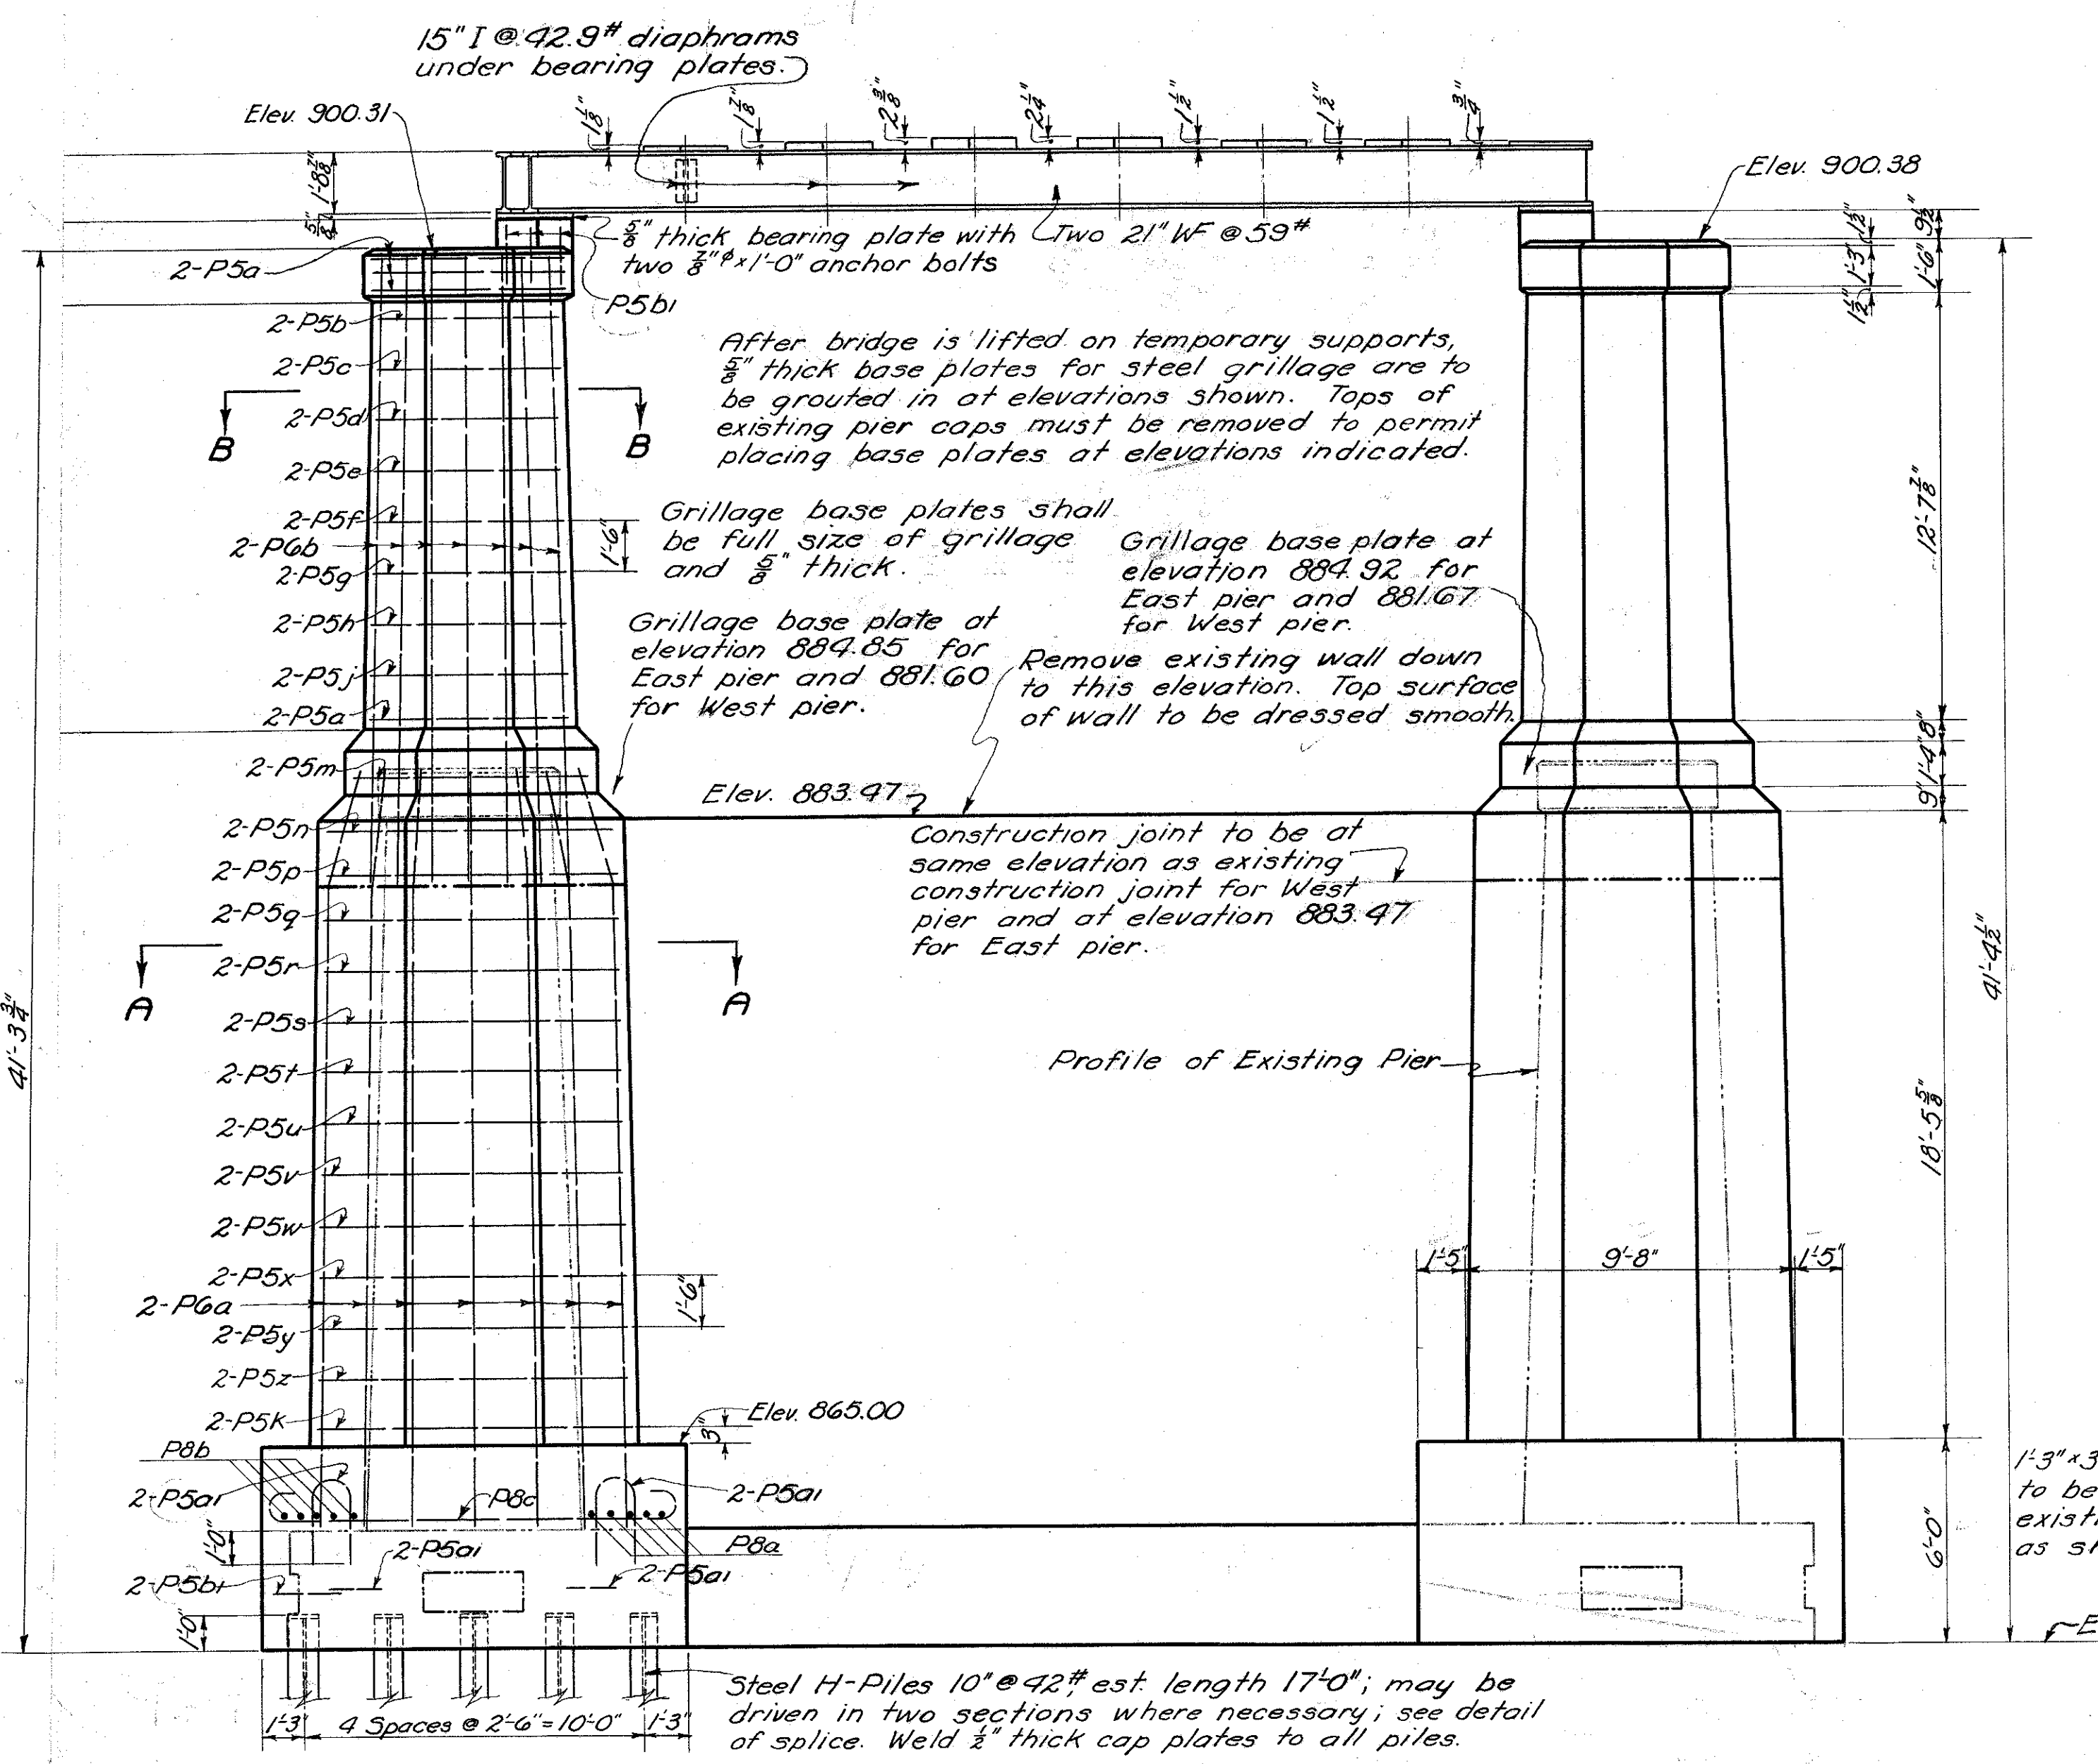 15" I @ 42.9# diaphrams
under bearing plates.
Elev. 900.31
1 1/8"
1 7/8"
2 3/8"
2 1/4"
1 1/2"
1 1/2"
3/4"
Elev. 900.38
1'-8 7/8"
5/8"
5/8" thick bearing plate with
two 7/8"φ x 1'-0" anchor bolts
Two 21" WF @ 59#
1 1/2"
9 1/2"
1'-3"
1'-6"
1 1/2"
2-P5a
P5b1
2-P5b
2-P5c
2-P5d
2-P5e
2-P5f
2-P6b
2-P5g
2-P5h
2-P5j
2-P5a
2-P5m
2-P5n
2-P5p
2-P5q
2-P5r
2-P5s
2-P5t
2-P5u
2-P5v
2-P5w
2-P5x
2-P6a
2-P5y
2-P5z
2-P5k
B
B
1'-6"
After bridge is lifted on temporary supports,
5/8" thick base plates for steel grillage are to
be grouted in at elevations shown. Tops of
existing pier caps must be removed to permit
placing base plates at elevations indicated.
Grillage base plates shall
be full size of grillage
and 5/8" thick.
Grillage base plate at
elevation 884.92 for
East pier and 881.67
for West pier.
Grillage base plate at
elevation 884.85 for
East pier and 881.60
for West pier.
Remove existing wall down
to this elevation. Top surface
of wall to be dressed smooth.
12'-7 7/8"
8"
1'-4"
9"
Elev. 883.47
Construction joint to be at
same elevation as existing
construction joint for West
pier and at elevation 883.47
for East pier.
A
A
41'-3 3/4"
41'-4 1/2"
Profile of Existing Pier
18'-5 5/8"
1'-5"
9'-8"
1'-5"
1'-6"
Elev. 865.00
3"
P8b
2-P5a1
P8c
2-P5a1
P8a
1'-0"
2-P5a1
2-P5b1
2-P5a1
1'-0"
6'-0"
1'-3" x 3
to be
exist
as s
E
1'-3"
4 Spaces @ 2'-6" = 10'-0"
1'-3"
Steel H-Piles 10" @ 42#, est. length 17'-0"; may be
driven in two sections where necessary; see detail
of splice. Weld 1/2" thick cap plates to all piles.